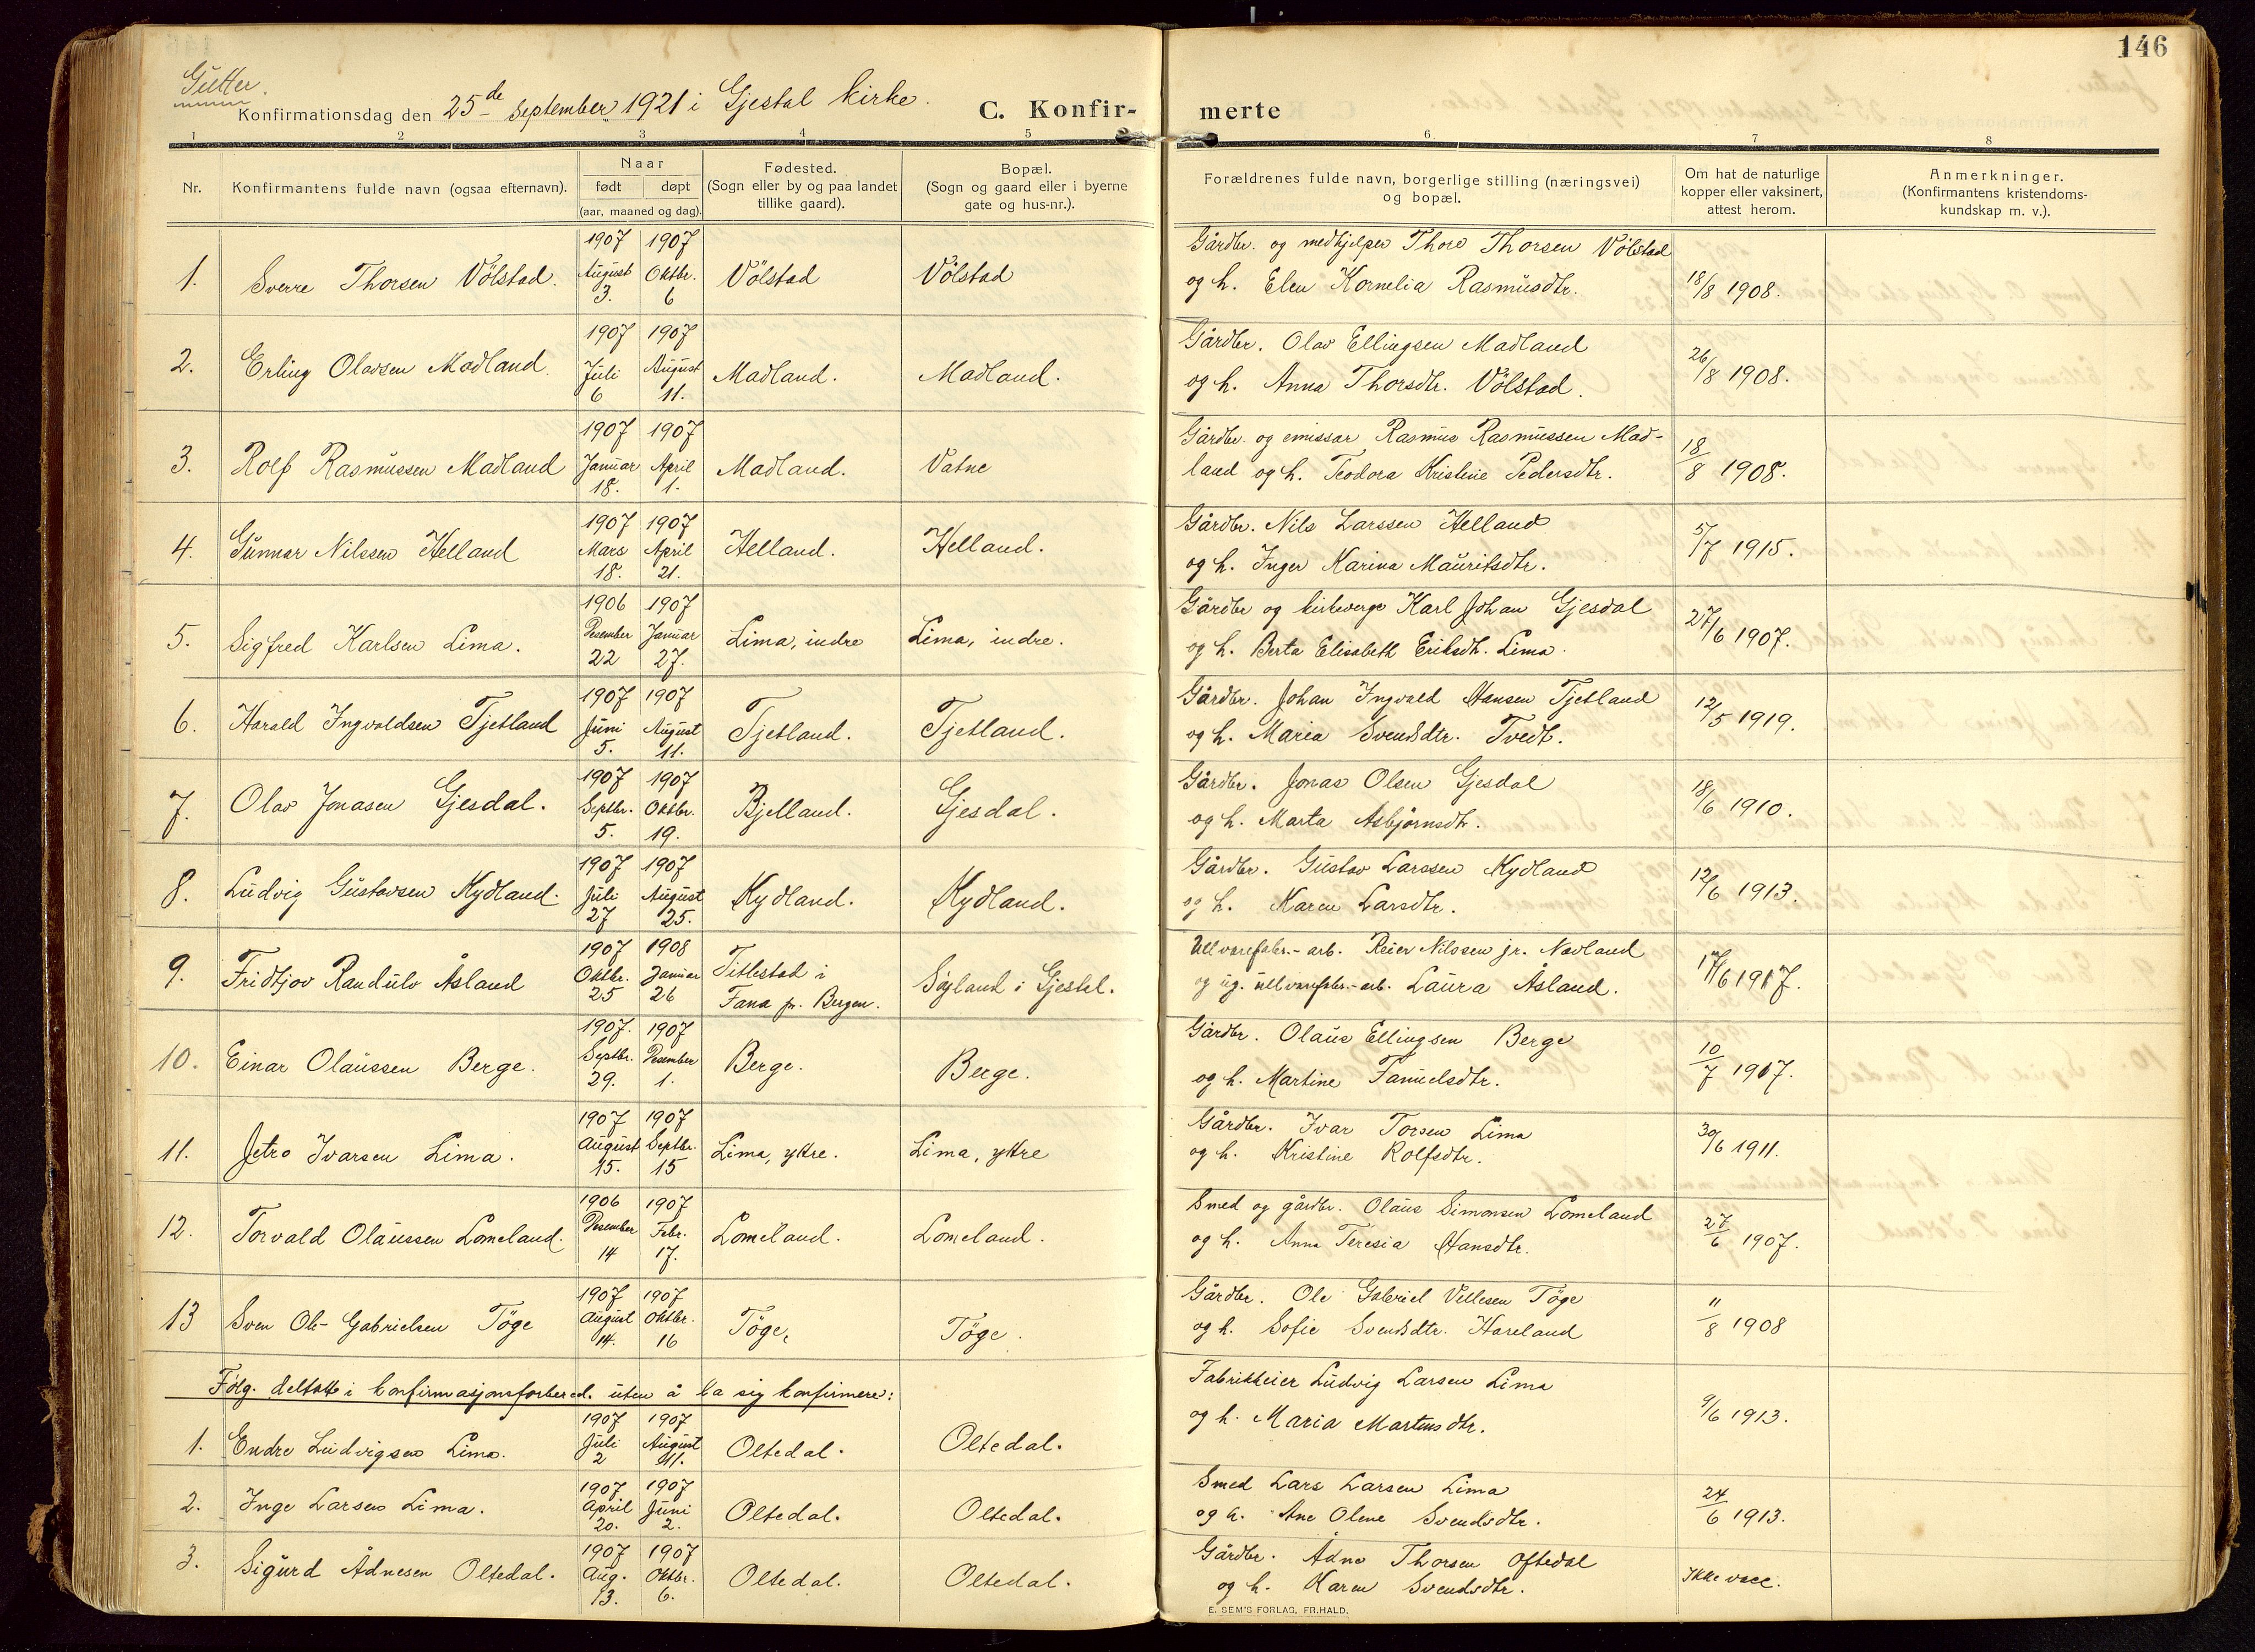 146
Gutter.
Konfirmationsdag den 25de September 1921 i Gjestal kirke.
C. Konfir-
merte
1 2 3 4 5 6 7 8
Nr.
Konfirmantens fulde navn (ogsaa efternavn).
Naar
født døpt
(aar, maaned og dag).
Fødested.
(Sogn eller by og paa landet
tillike gaard).
Bopæl.
(Sogn og gaard eller i byerne
gate og hus-nr.).
Forældrenes fulde navn, borgerlige stilling (næringsvei)
og bopæl.
Om hat de naturlige
kopper eller vaksinert,
attest herom.
Anmerkninger.
(Konfirmantens kristendoms-
kundskap m. v.).
1907 1907 Gårdbr. og medhjelper Thore Thorsen Völstad
1. Sverre Thorsen Völstad. August Oktbr. Völstad Völstad
3. 6 og h. Elen Kornelia Rasmusdtr. 18/8 1908.
1907 1907 Gårdbr. Olav Ellingsen Madland
2. Erling Olavsen Madland. Juli August Madland. Madland. 26/8 1908.
6 11. og h. Anna Thorsdtr. Völstad.
1907 1907 Gårdbr. og emissær Rasmus Rasmussen Mad-
3. Rolf Rasmussen Madland Januar April Madland. Vatne 18/8 1908.
18. 1. land og h. Teodora Kristine Pedersdtr.
1907 1907 Gårdbr. Nils Larssen Helland
4. Gunnar Nilssen Helland Mars April Helland. Helland. 5/7 1915.
18. 21. og h. Inger Karina Mauritsdtr.
1906 1907 Gårdbr og kirkeverge Karl Johan Gjesdal
5. Sigfred Karlsen Lima. Desember Januar Lima, indre Lima, indre. 27/6 1907.
22 27. og h. Berta Elisabeth Eriksdtr. Lima.
1907 1907 Gårdbr. Johan Ingvald Hansen Tjetland
6. Harald Ingvaldsen Tjetland Juni August Tjetland. Tjetland. 12/5 1919.
5. 11. og h. Maria Svendsdtr. Tvedt.
1907 1907 Gårdbr. Jonas Olsen Gjesdal
7. Olav Jonasen Gjesdal. Septbr. Oktbr. Bjelland. Gjesdal. 18/6 1910.
5. 19. og h. Marta Asbjørnsdtr.
1907 1907 Gårdbr. Gustav Larssen Kydland
8. Ludvig Gustavsen Kydland. Juli August Kydland. Kydland. 12/6 1913.
27 25. og h. Karen Larsdtr.
1907 1908 Ullvarefabr.-arb. Reier Nilssen jr. Navland
9. Fridtjov Randulv Åsland Oktbr. Januar Titlestad i Søyland i Gjestal. 17/6 1917.
25 26 Fana pr. Bergen. og ug. ullvarefabr.-arb. Laura Åsland.
1907. 1907 Gårdbr. Olaus Ellingsen Berge
10. Einar Olaussen Berge. Septbr. Desember Berge. Berge. 10/7 1917.
29. 1. og h. Martine Tanuelsdtr.
1907 1907 Gårdbr. Ivar Torsen Lima
11. Jetro Ivarsen Lima. August Septbr. Lima, ytre. Lima, ytre 30/6 1911.
15. 15 og h. Kristine Rolfsdtr.
1906 1907 Smed og gårdbr. Olaus Simonsen Lomeland
12. Torvald Olaussen Lomeland. Desember Febr. Lomeland. Lomeland. 27/6 1907.
14 17. og h. Anna Teresia Hansdtr.
1907 1907 Gårdbr. Ole Gabriel Vellesen Töge
13 Sven Ole-Gabrielsen Töge August Oktbr. Töge, Töge. 11/8 1908
14. 16 og h. Sofie Svendsdtr. Haveland
Følg. deltatt i konfirmasjonsforbered. uten å la sig konfirmere:
1907 1907 Fabrikkeier Ludvig Larsen Lima
1. Endre Ludvigsen Lima. Juli August Oltedal. Oltedal. 9/6 1913.
2 11. og h. Maria Martinsdtr.
1907 1907 Smed Lars Larsen Lima
2. Inge Larsen Lima. April Juni Oltedal. Oltedal. 24/6 1913.
20. 2. og h. Ane Olene Svendsdtr.
1907 1907 Gårdbr. Ådne Thorsen Oftedal
3. Sigurd Ådnesen Oltedal. Aug. Oktbr. Oltedal. Oltedal. Ikke vacc.
13. 6. og h. Karen Svendsdtr.
E. SEM'S FORLAG, FR.HALD.